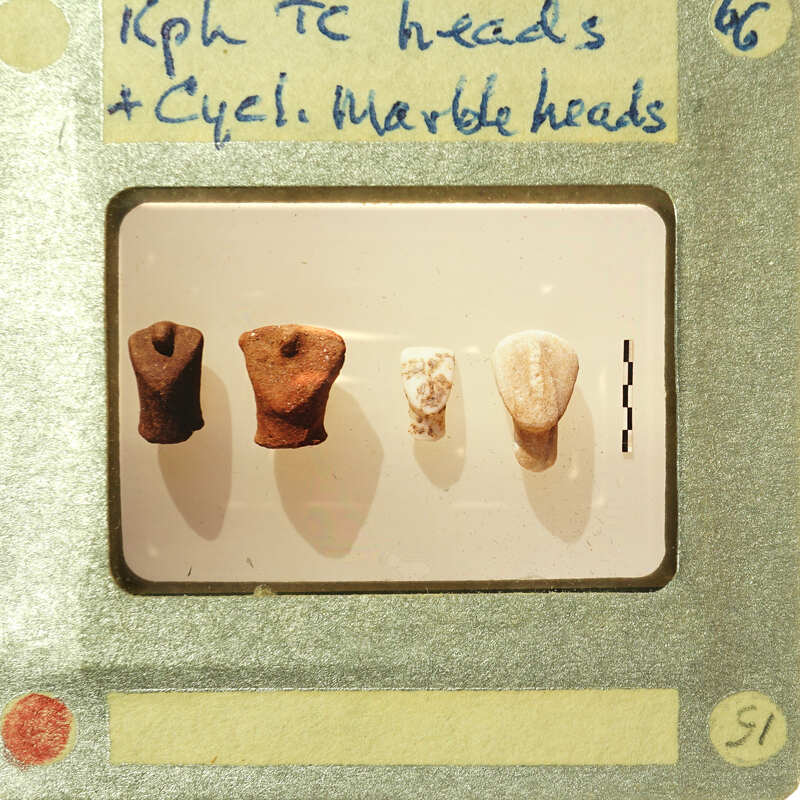 Kph TC heads
+ Cycl. Marble heads
66
15